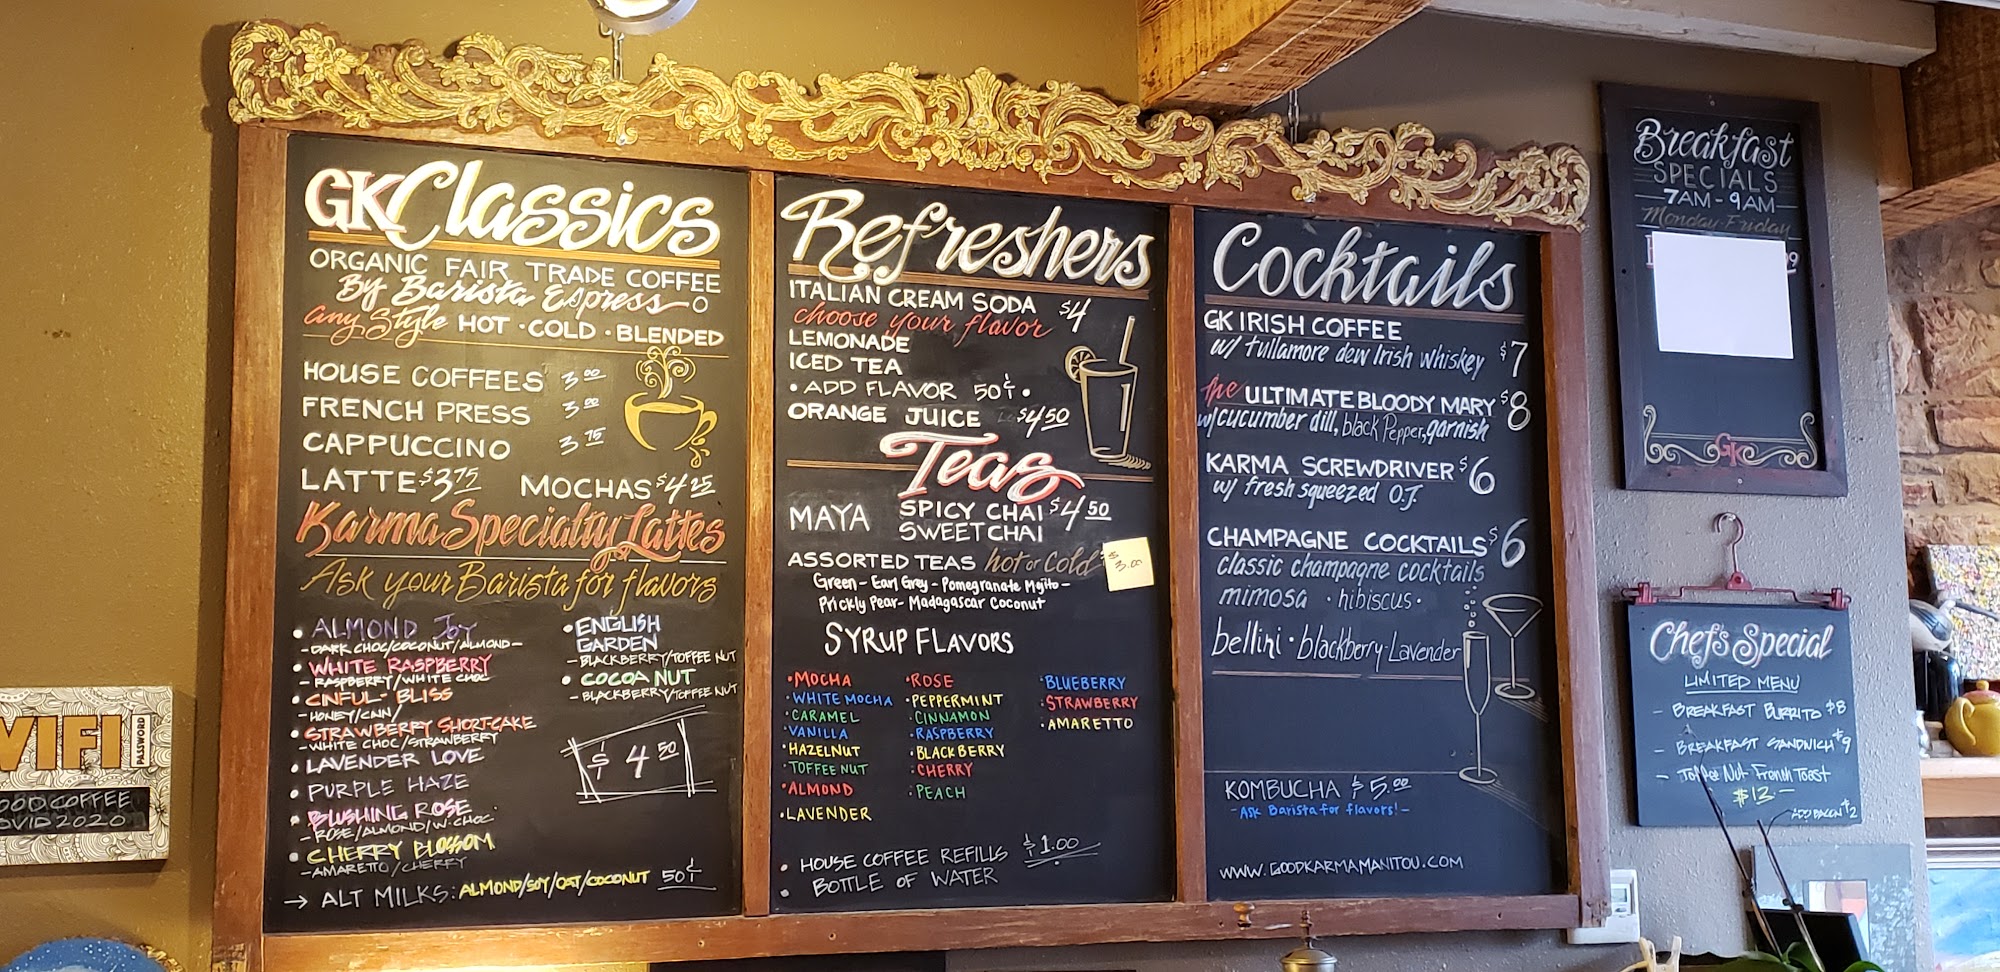 GK Classics
ORGANIC FAIR TRADE COFFEE
By Barista Espresso
Any Style HOT · COLD · BLENDED
HOUSE COFFEES 3.00
FRENCH PRESS 3.00
CAPPUCCINO 3.75
LATTE $3.75 MOCHAS $4.25
Karma Specialty Lattes
Ask your Barista for flavors
• ALMOND JOY
- DARK CHOC/COCONUT/ALMOND -
• WHITE RASPBERRY
- RASPBERRY/WHITE CHOC
• CINFUL - BLISS
- HONEY/CNN/
• STRAWBERRY SHORT-CAKE
- WHITE CHOC/STRAWBERRY
• LAVENDER LOVE
• PURPLE HAZE
• BLUSHING ROSE
- ROSE/ALMOND/W·CHOC
• CHERRY BLOSSOM
- AMARETTO/CHERRY
• ENGLISH
GARDEN
- BLACKBERRY/TOFFEE NUT
• COCOA NUT
- BLACKBERRY/TOFFEE NUT
$4.50
→ ALT MILKS: ALMOND/SOY/OAT/COCONUT 50¢
Refreshers
ITALIAN CREAM SODA $4
choose your flavor
LEMONADE
ICED TEA
• ADD FLAVOR 50¢ •
ORANGE JUICE $4.50
Teas
MAYA SPICY CHAI $4.50
SWEET CHAI
ASSORTED TEAS hot or cold $3.00
Green - Earl Grey - Pomegranate Mojito -
Prickly Pear - Madagascar Coconut
SYRUP FLAVORS
• MOCHA
• WHITE MOCHA
• CARAMEL
• VANILLA
• HAZELNUT
• TOFFEE NUT
• ALMOND
• LAVENDER
• ROSE
• PEPPERMINT
• CINNAMON
• RASPBERRY
• BLACKBERRY
• CHERRY
• PEACH
• BLUEBERRY
• STRAWBERRY
• AMARETTO
• HOUSE COFFEE REFILLS $1.00
• BOTTLE OF WATER
Cocktails
GK IRISH COFFEE
w/ tullamore dew Irish whiskey $7
The ULTIMATE BLOODY MARY $8
w/cucumber dill, black Pepper, garnish
KARMA SCREWDRIVER $6
w/ fresh squeezed O.J.
CHAMPAGNE COCKTAILS $6
classic champagne cocktails
mimosa · hibiscus ·
bellini · blackberry-Lavender
KOMBUCHA $5.00
- Ask Barista for flavors! -
WWW.GOODKARMAMANITOU.COM
Breakfast
SPECIALS
7AM - 9AM
Monday-Friday
GK
Chef's Special
LIMITED MENU
- BREAKFAST BURRITO $8
- BREAKFAST SANDWICH $9
- Toffee Nut French Toast
$12 -
ADD BACON $2
WIFI
PASSWORD
OOD COFFEE
OVID 2020